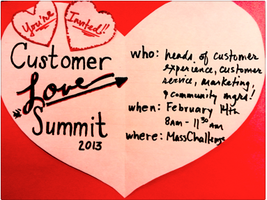 You're
Invited!!
Customer
Love
Summit
2013
who: heads of customer
experience, customer
service, marketing,
& community mgrs!
when: February 14th
8am - 11:30am
where: MassChallenge